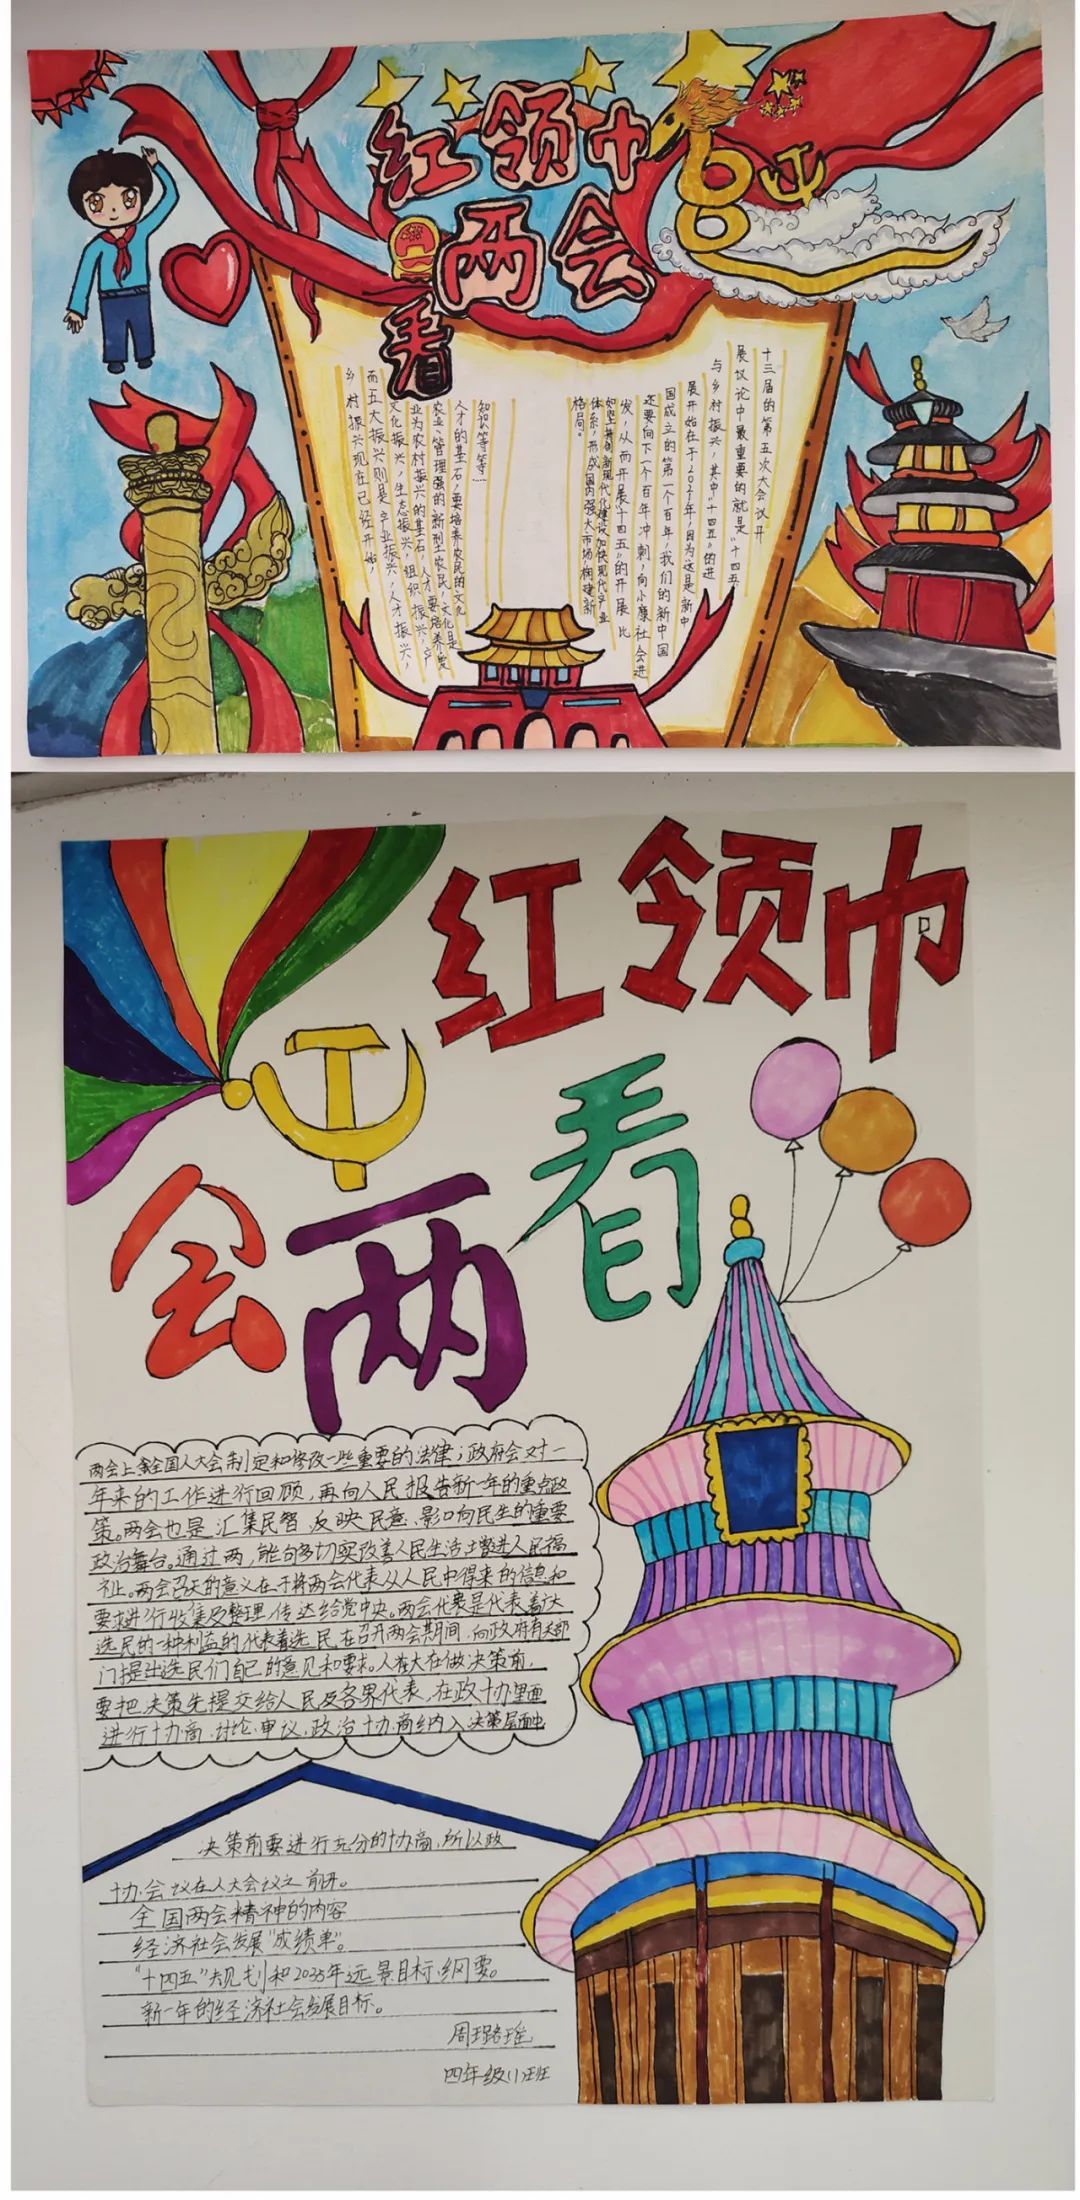 红领巾
看两会
十三届的第五次大会议开
展议论中最重要的就是“十四五
与乡村振兴，其中“十四五”的进
展开始在于2021年，因为这是新中
国成立的第一个百年，我们的新中国
还要向下一个百年冲刺，向小康社会进
发，从而开展“十四五”的开展比
如坚持创新现代化建设加快现代产业
体系，形成国内强大市场，构建新
格局。
知识等等…
人才的基石，要培养农民的文化
农业、管理强的新型农民，文化是
业为农村振兴的基石，人才要培养爱
文化振兴，生态振兴，组织振兴，产
而五大振兴则是产业振兴，人才振兴，
乡村振兴现在已经开始，
红领巾
看两会
两会上全国人大会制定和修改一些重要的法律；政府会对一
年来的工作进行回顾，再向人民报告新一年的重点政
策。两会也是汇集民智，反映民意，影响向民生的重要
政治舞台。通过两，能够多切实改善人民生活土曾进人民福
祉。两会召天的意义在于将两会代表从人民中得来的信息和
要求进行收集及整理，传达给党中央。两会代表是代表着广大
选民的一种利益的，代表着选民，在召开两会期间，向政府有关部
门提出选民们自己的意见和要求。人大在做决策前，
要把决策先提交给人民及各界代表，在政协里面
进行协商，讨论，审议，政治协商纳入决策层面中
决策前要进行充分的协商，所以政
协会议在人大会议之前开。
全国两会精神的内容
经济社会发展“成绩单”。
“十四五”规划和2035年远景目标纲要。
新一年的经济社会发展目标。
周珞瑶
四年级(1)班